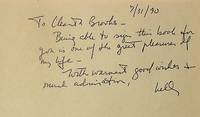 7/31/90
To Cleanth Brooks -
Being able to sign this book for
you is one of the great pleasures of
my life -
With warmest good wishes &
much admiration,